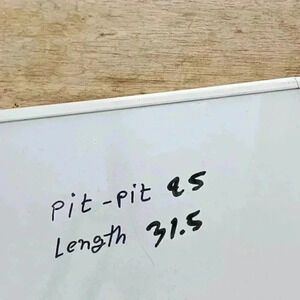 Pit-Pit 25
Length 31.5